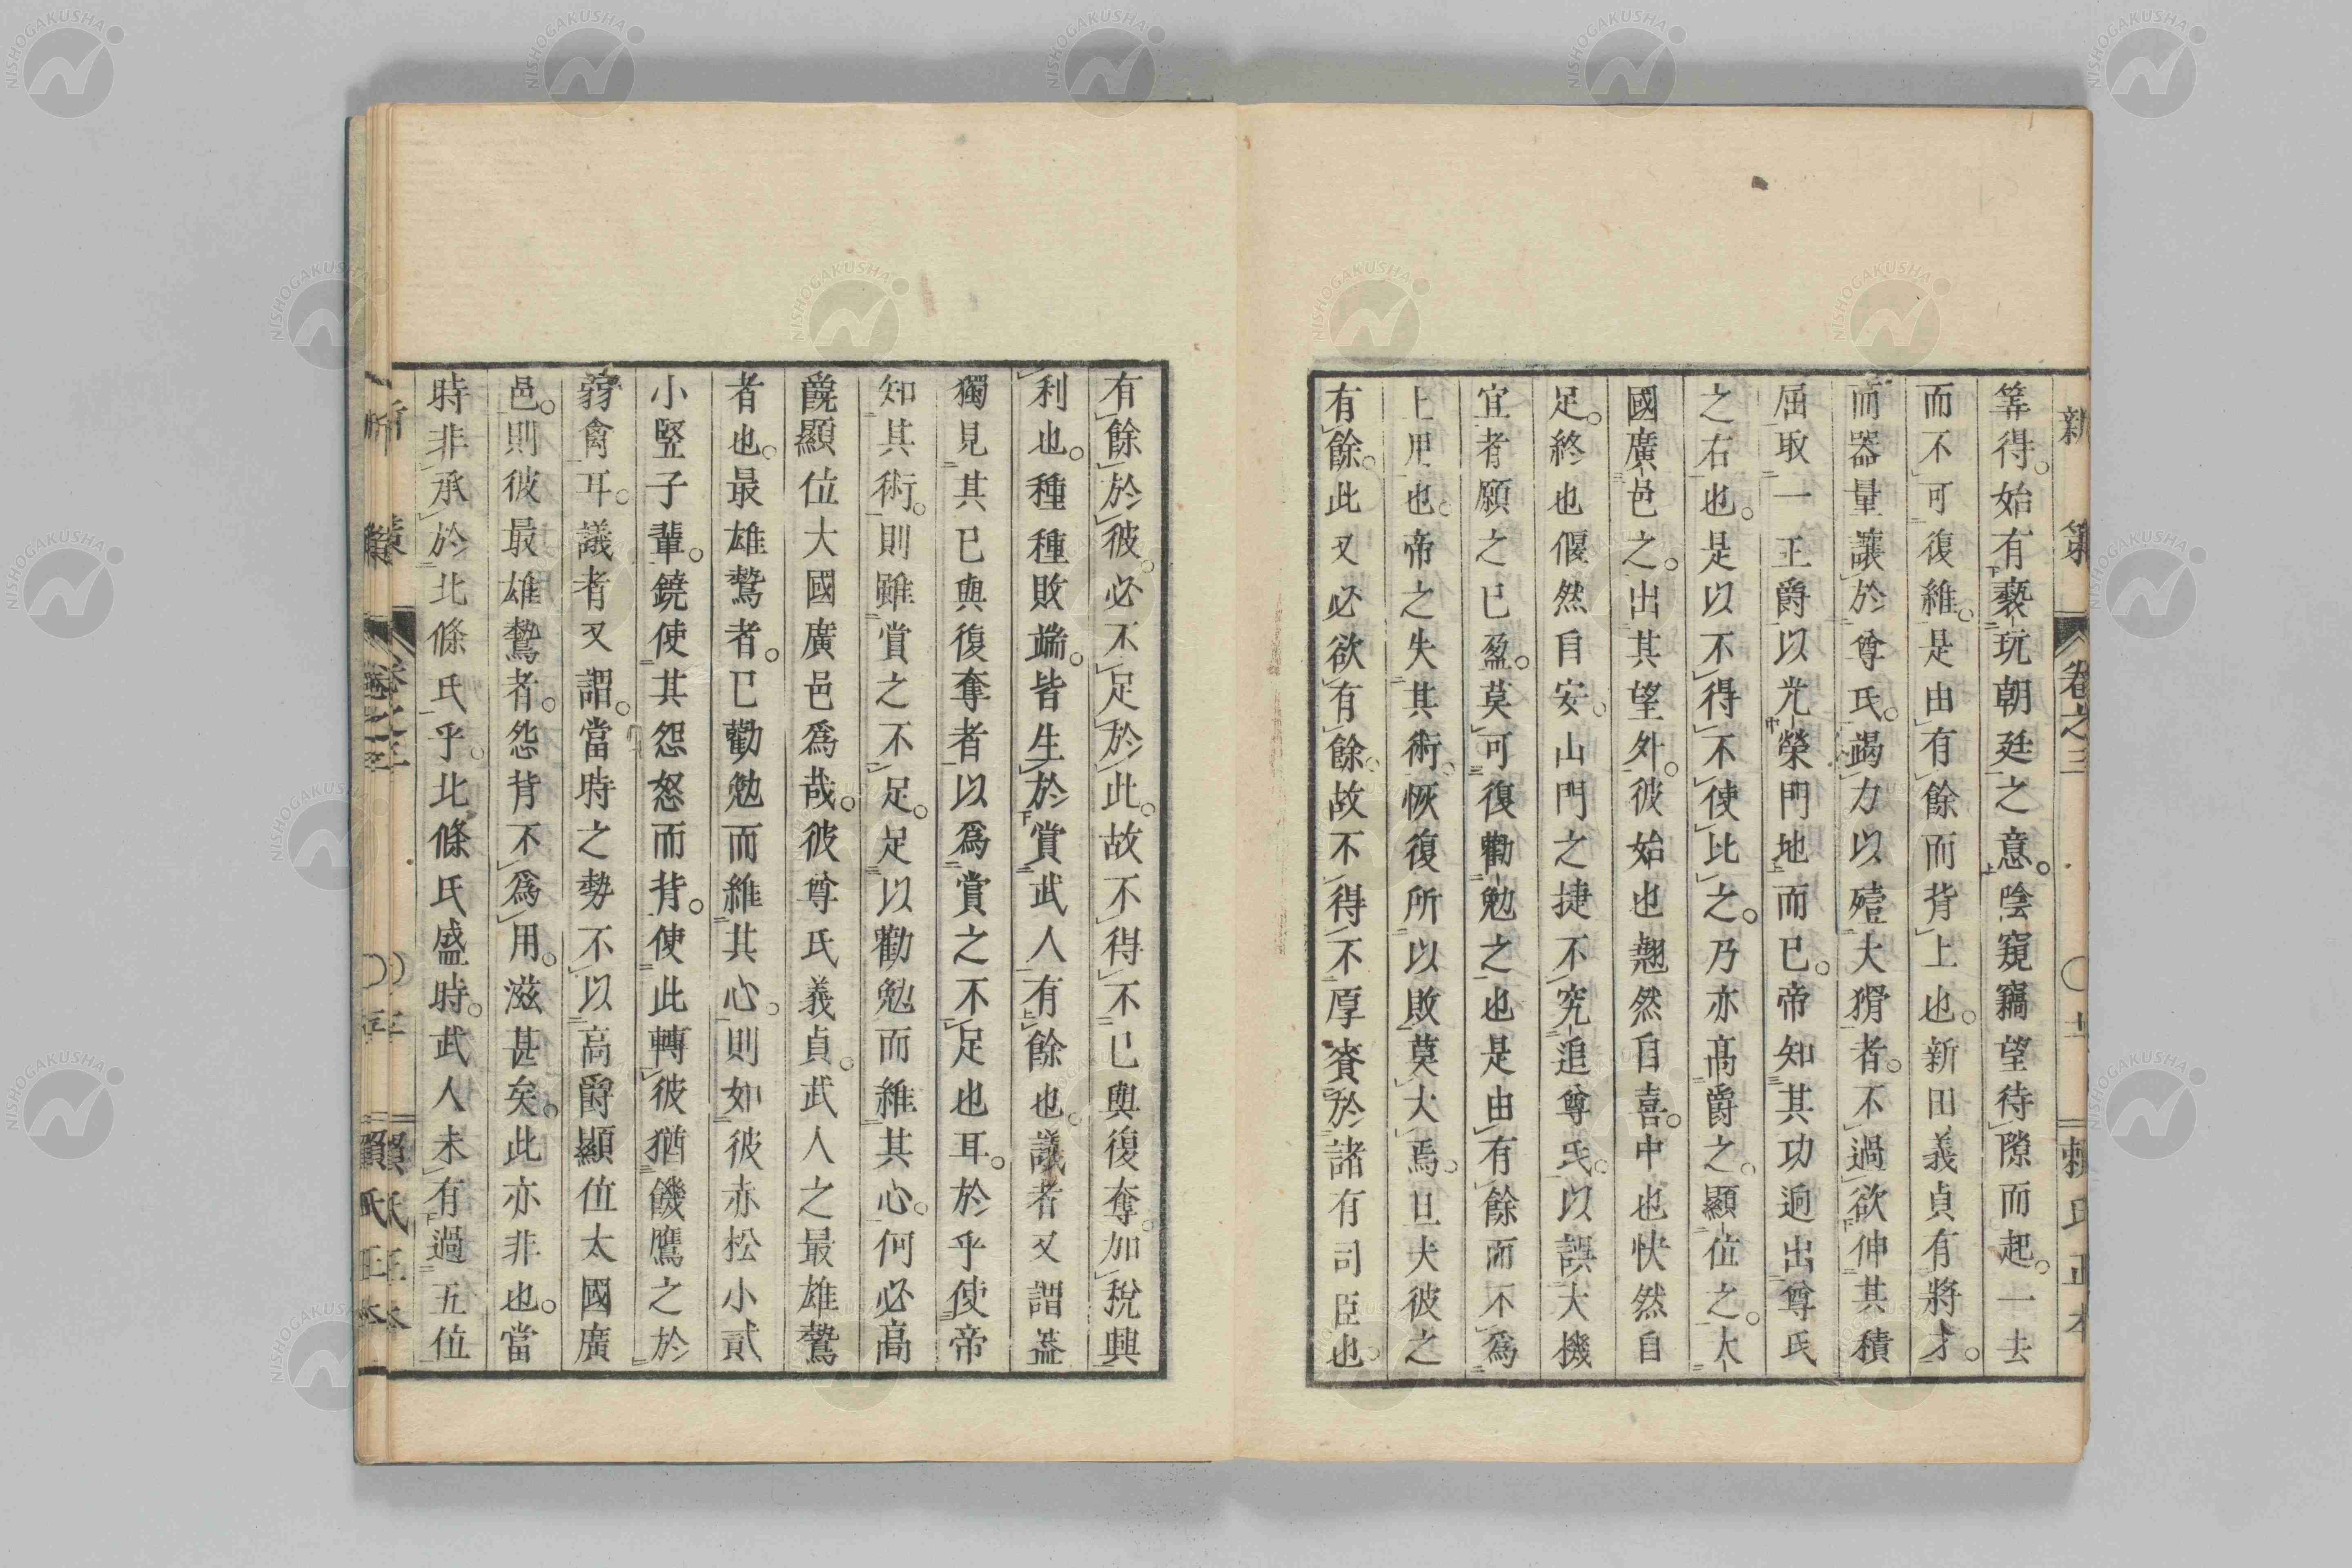 新策 卷之三 賴氏正本
筭得。始有褻玩朝廷之意。陰窺竊望待隙而起。一去
而不可復維。是由有餘而背上也。新田義貞有將才。
而器量讓於尊氏。竭力以殪大猾者。不過欲伸其積
屈取一王爵以光榮門地而已。帝知其功迥出尊氏
之右也。是以不得不使比之。乃亦高爵之。顯位之。大
國廣邑之。出其望外。彼始也翹然自喜。中也快然自
足。終也偃然自安。山門之捷不究追尊氏。以誤大機
宜者願之已盈。莫可復勸勉之也是由有餘而不爲
上用也。帝之失其術。恢復所以敗莫大焉。且夫彼之
有餘。此又必欲有餘。故不得不厚賚於諸有司臣也。
有餘於彼。必不足於此。故不得不已與復奪。加稅興
利也。種種敗端。皆生於賞武人有餘也。議者又謂蓋
獨見其已與復奪者以爲賞之不足也耳。於乎使帝
知其術。則雖賞之不足。足以勸勉而維其心。何必高
爵顯位大國廣邑爲哉。彼尊氏義貞。武人之最雄鷙
者也。最雄鷙者。已勸勉而維其心。則如彼赤松小貳
小竪子輩。鐃使其怨怒而背。使此轉彼猶饑鷹之於
弱禽耳。議者又謂。當時之勢不以高爵顯位大國廣
邑。則彼最雄鷙者。怨背不爲用。滋甚矣。此亦非也。當
時非承於北條氏乎。北條氏盛時。武人未有過五位